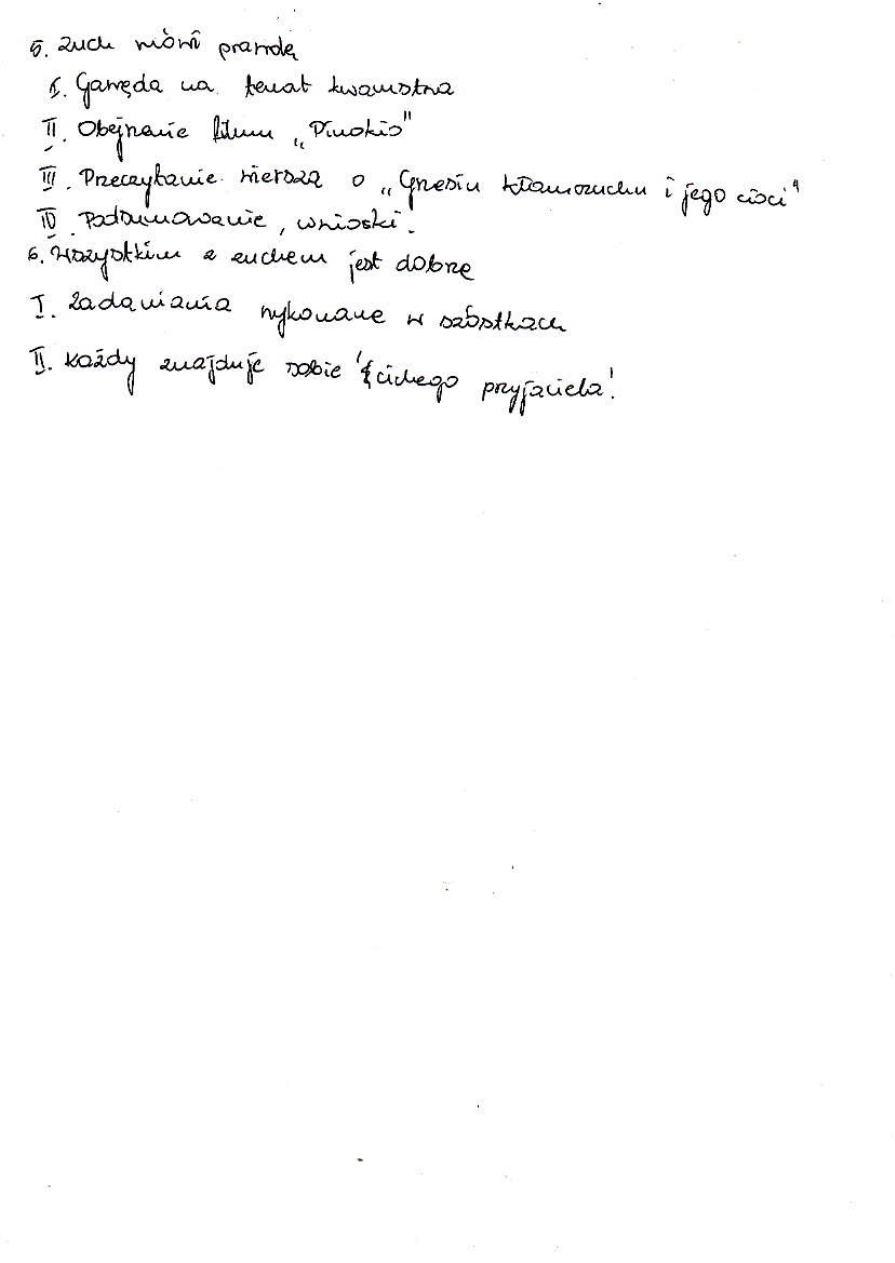 5. Zuch mówi prawdę
I. Gawęda na temat kłamstwa
II. Obejrzenie filmu „Pinokio"
III. Przeczytanie wiersza o „Grzesiu kłamczuchu i jego cioci"
IV. Podsumowanie, wnioski.
6. Wszystkim z zuchem jest dobrze
I. Zadaniania wykonane w szóstkach
II. Każdy znajduje sobie 'cichego przyjaciela'.